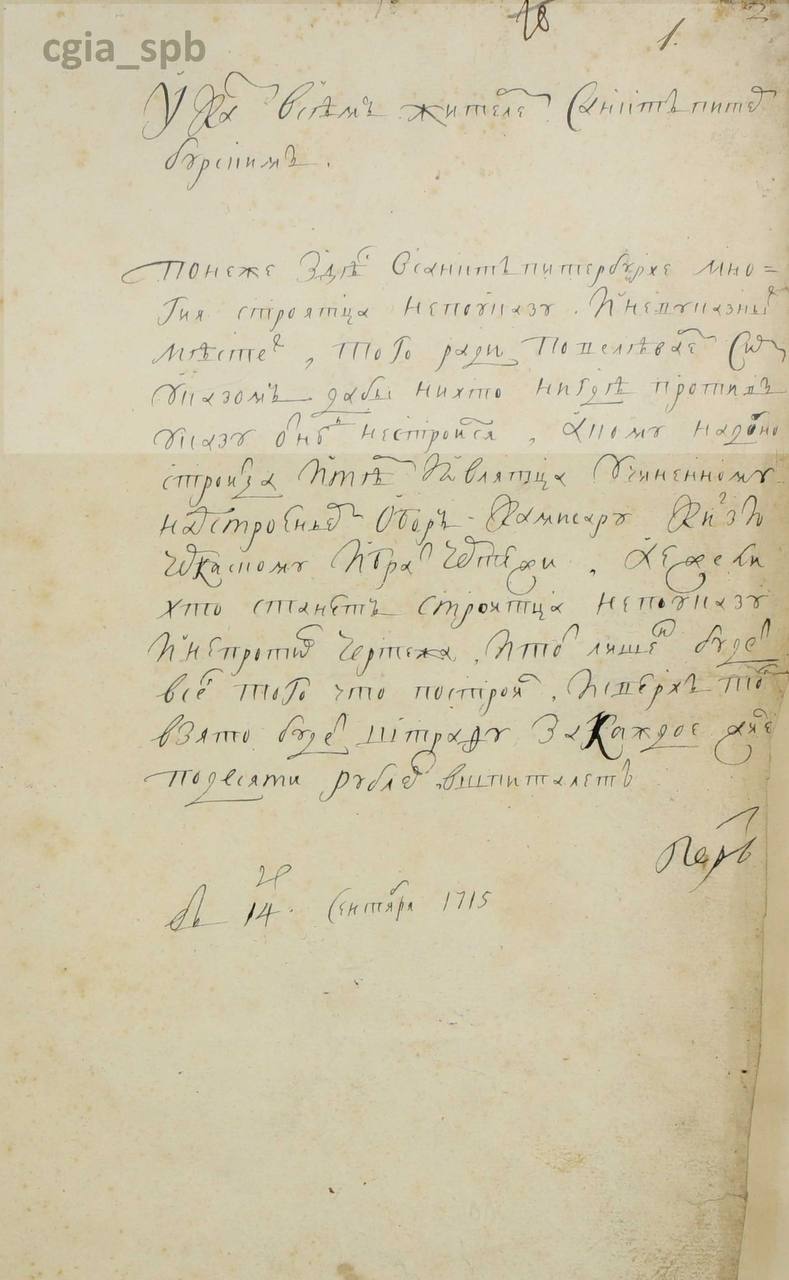 cgia_spb
18
1.
Указ всѣмъ жителем Санктъпитер
бурскимъ.
Понеже здѣс всанктъпитербурхе мно=
гия строятца непоуказу. и невуказных
мѣстех, того ради повелѣвает сим
указомъ дабы нихто нигдѣ противъ
указу онаго нестроился, а кому надобно
строитца и тѣ являтца учиненному
надстроением Обор-Камисару Князь
Черкасному и брат чертежи, а ежели
хто станетъ строятца непоуказу
и непротив чертежа, и тот лишен будет
всего того что построит, и сверхъ того
взято будет штрафу за каждое дияние
подесяти рублев вшпиталетъ
Петръ
въ 14 ч. Сентября 1715